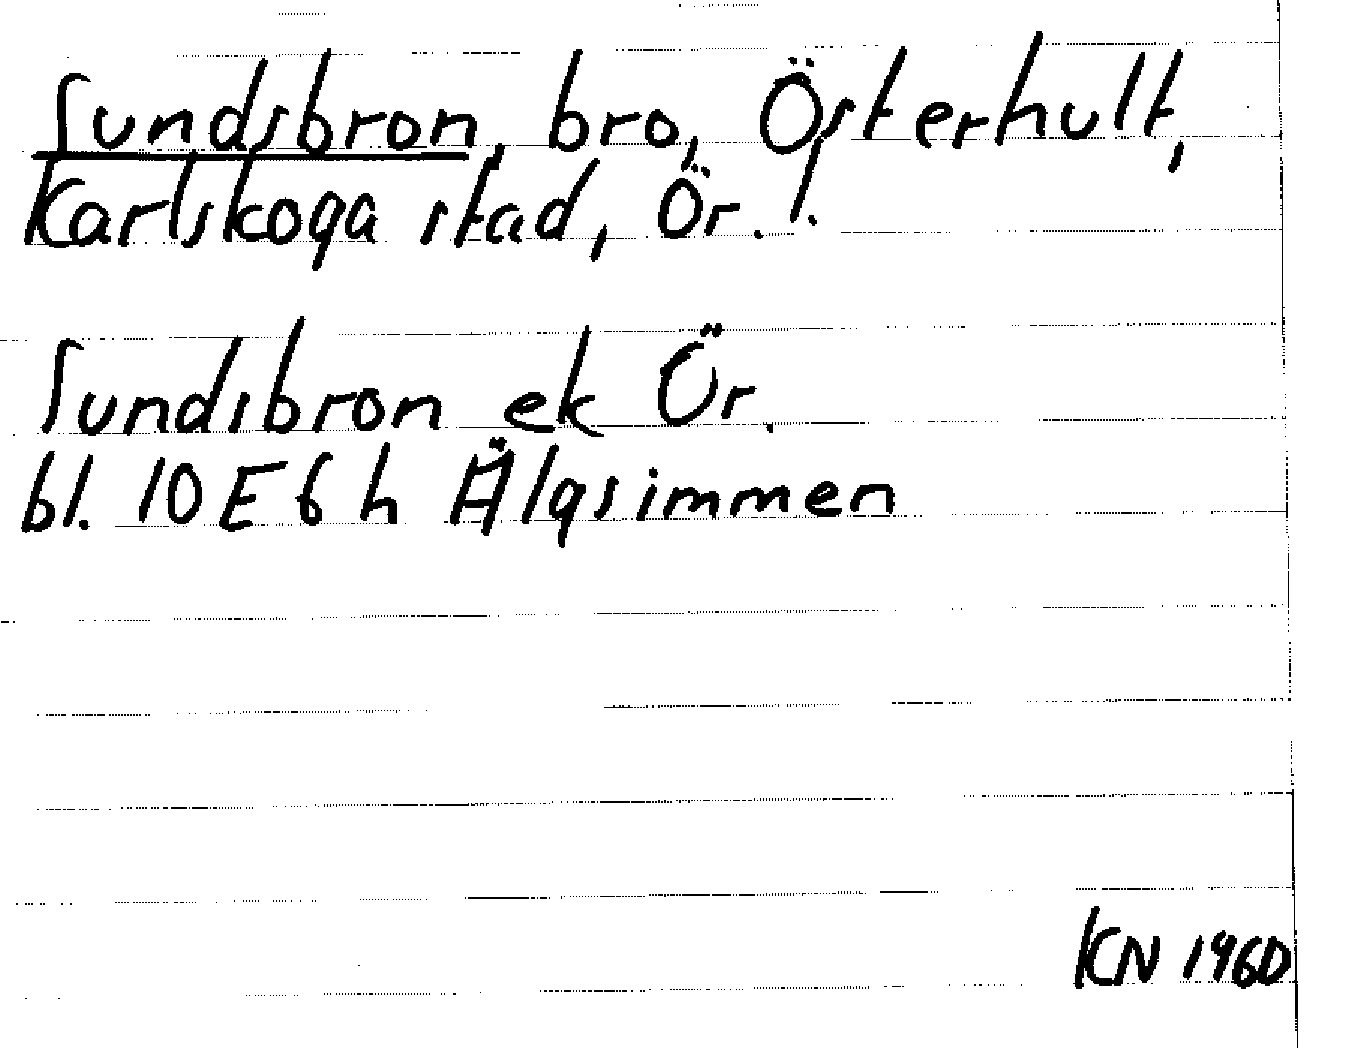 Sundsbron, bro, Österhult,
Karlskoga stad, Ör. l.
Sundsbron ek Ör.
bl. 10 E 6 h Älgsimmen
KN 1960